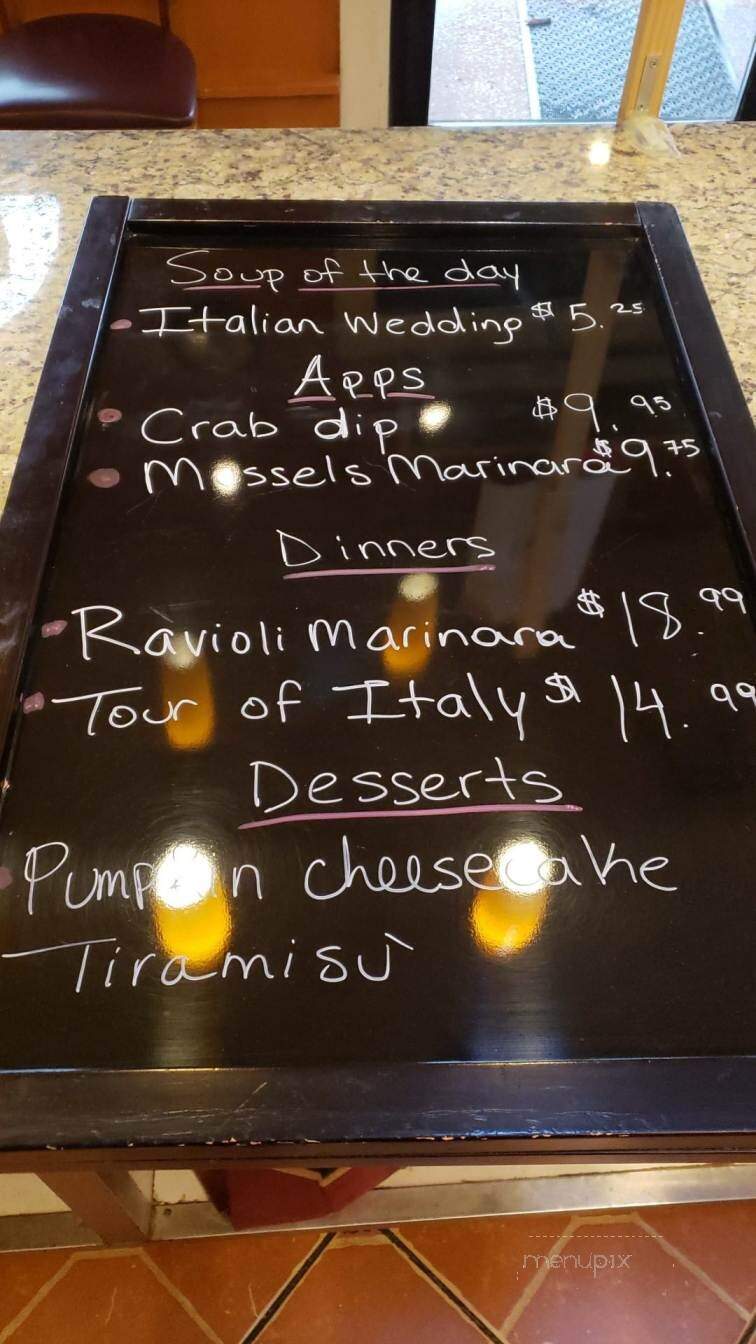 Soup of the day
Italian Wedding $5.25
Apps
Crab dip $9.95
Mussels Marinara $9.75
Dinners
Ravioli Marinara $18.99
Tour of Italy $14.99
Desserts
Pumpkin cheesecake
Tiramisù
menupix